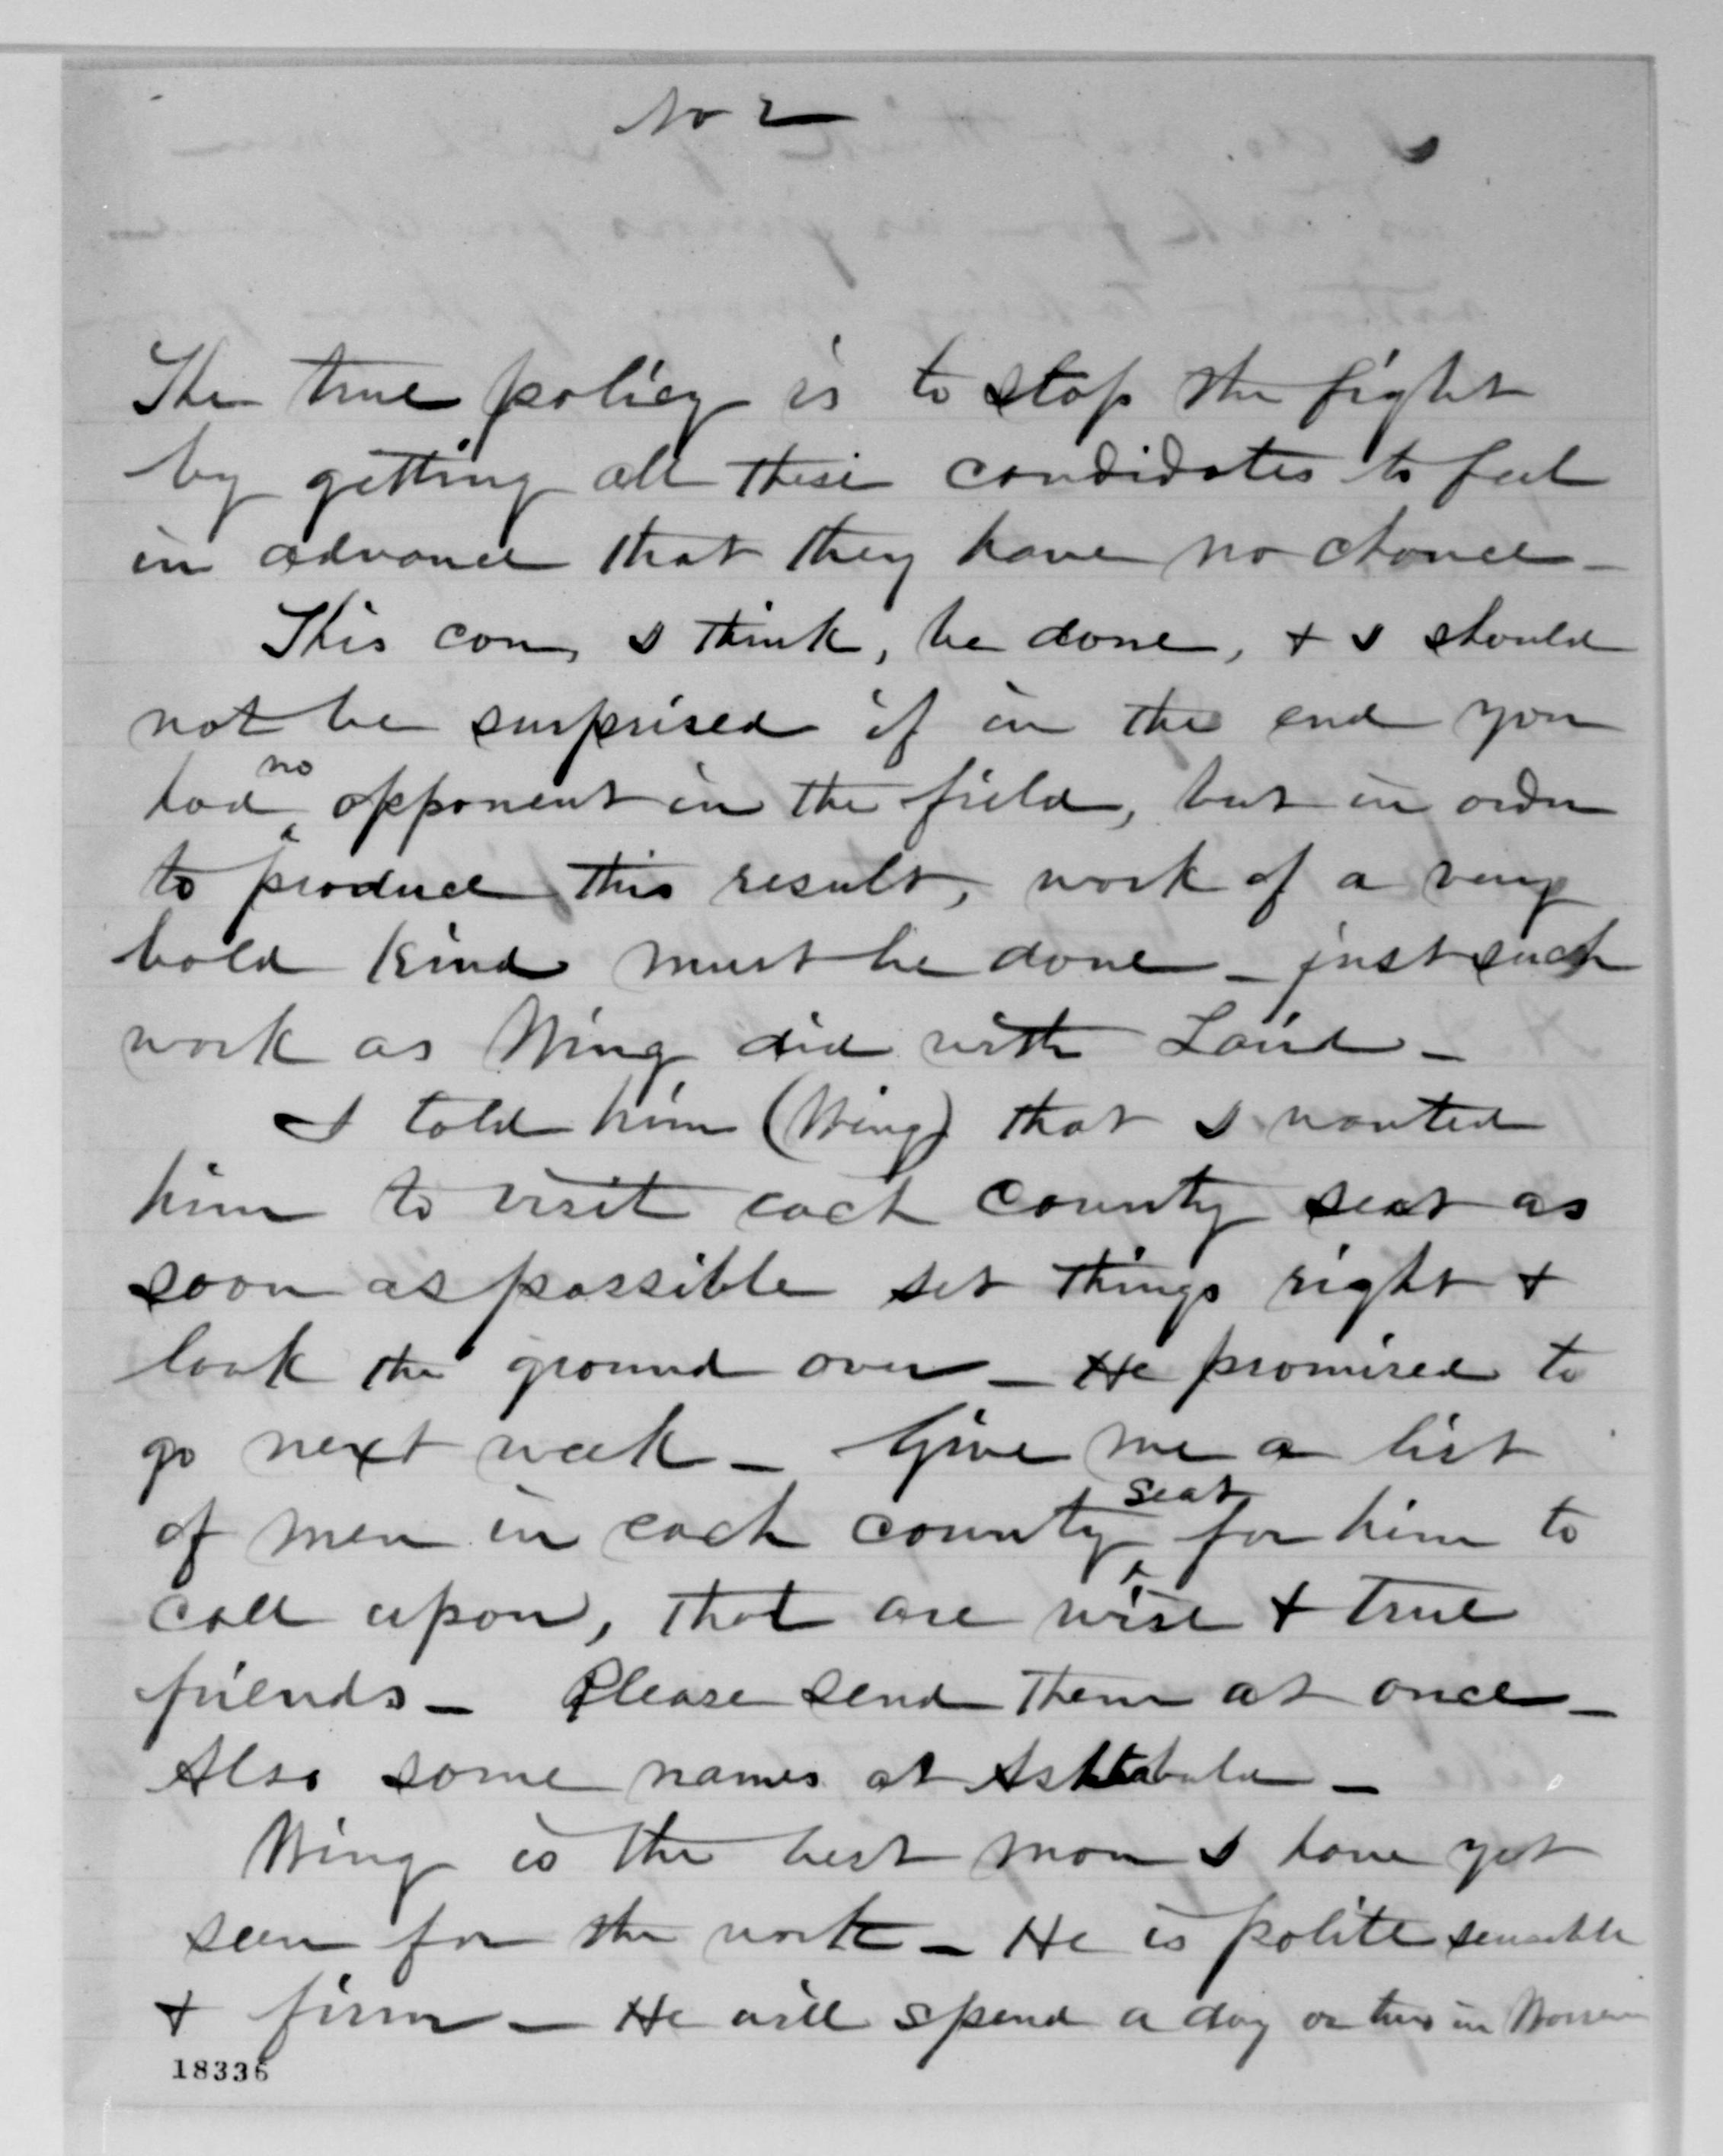 No 2
The true policy is to stop the fight
by getting all these candidates to feel
in advance that they have no chance -
This can, I think, be done, + I should
not be surprised if in the end you
had ^no opponent in the field, but in order
to produce this result, work of a very
bold kind must be done - just such
work as Wing did with Laird -
I told him (Wing) that I wanted
him to visit each county seat as
soon as possible set things right +
look the ground over - He promised to
go next week - Give me a list
of men in each county ^seat for him to
call upon, that are wise + true
friends - Please send them at once -
Also some names at Ashtabula -
Wing is the best man I have yet
seen for the work - He is polite sensible
+ firm - He will spend a day or two in Warren
18336